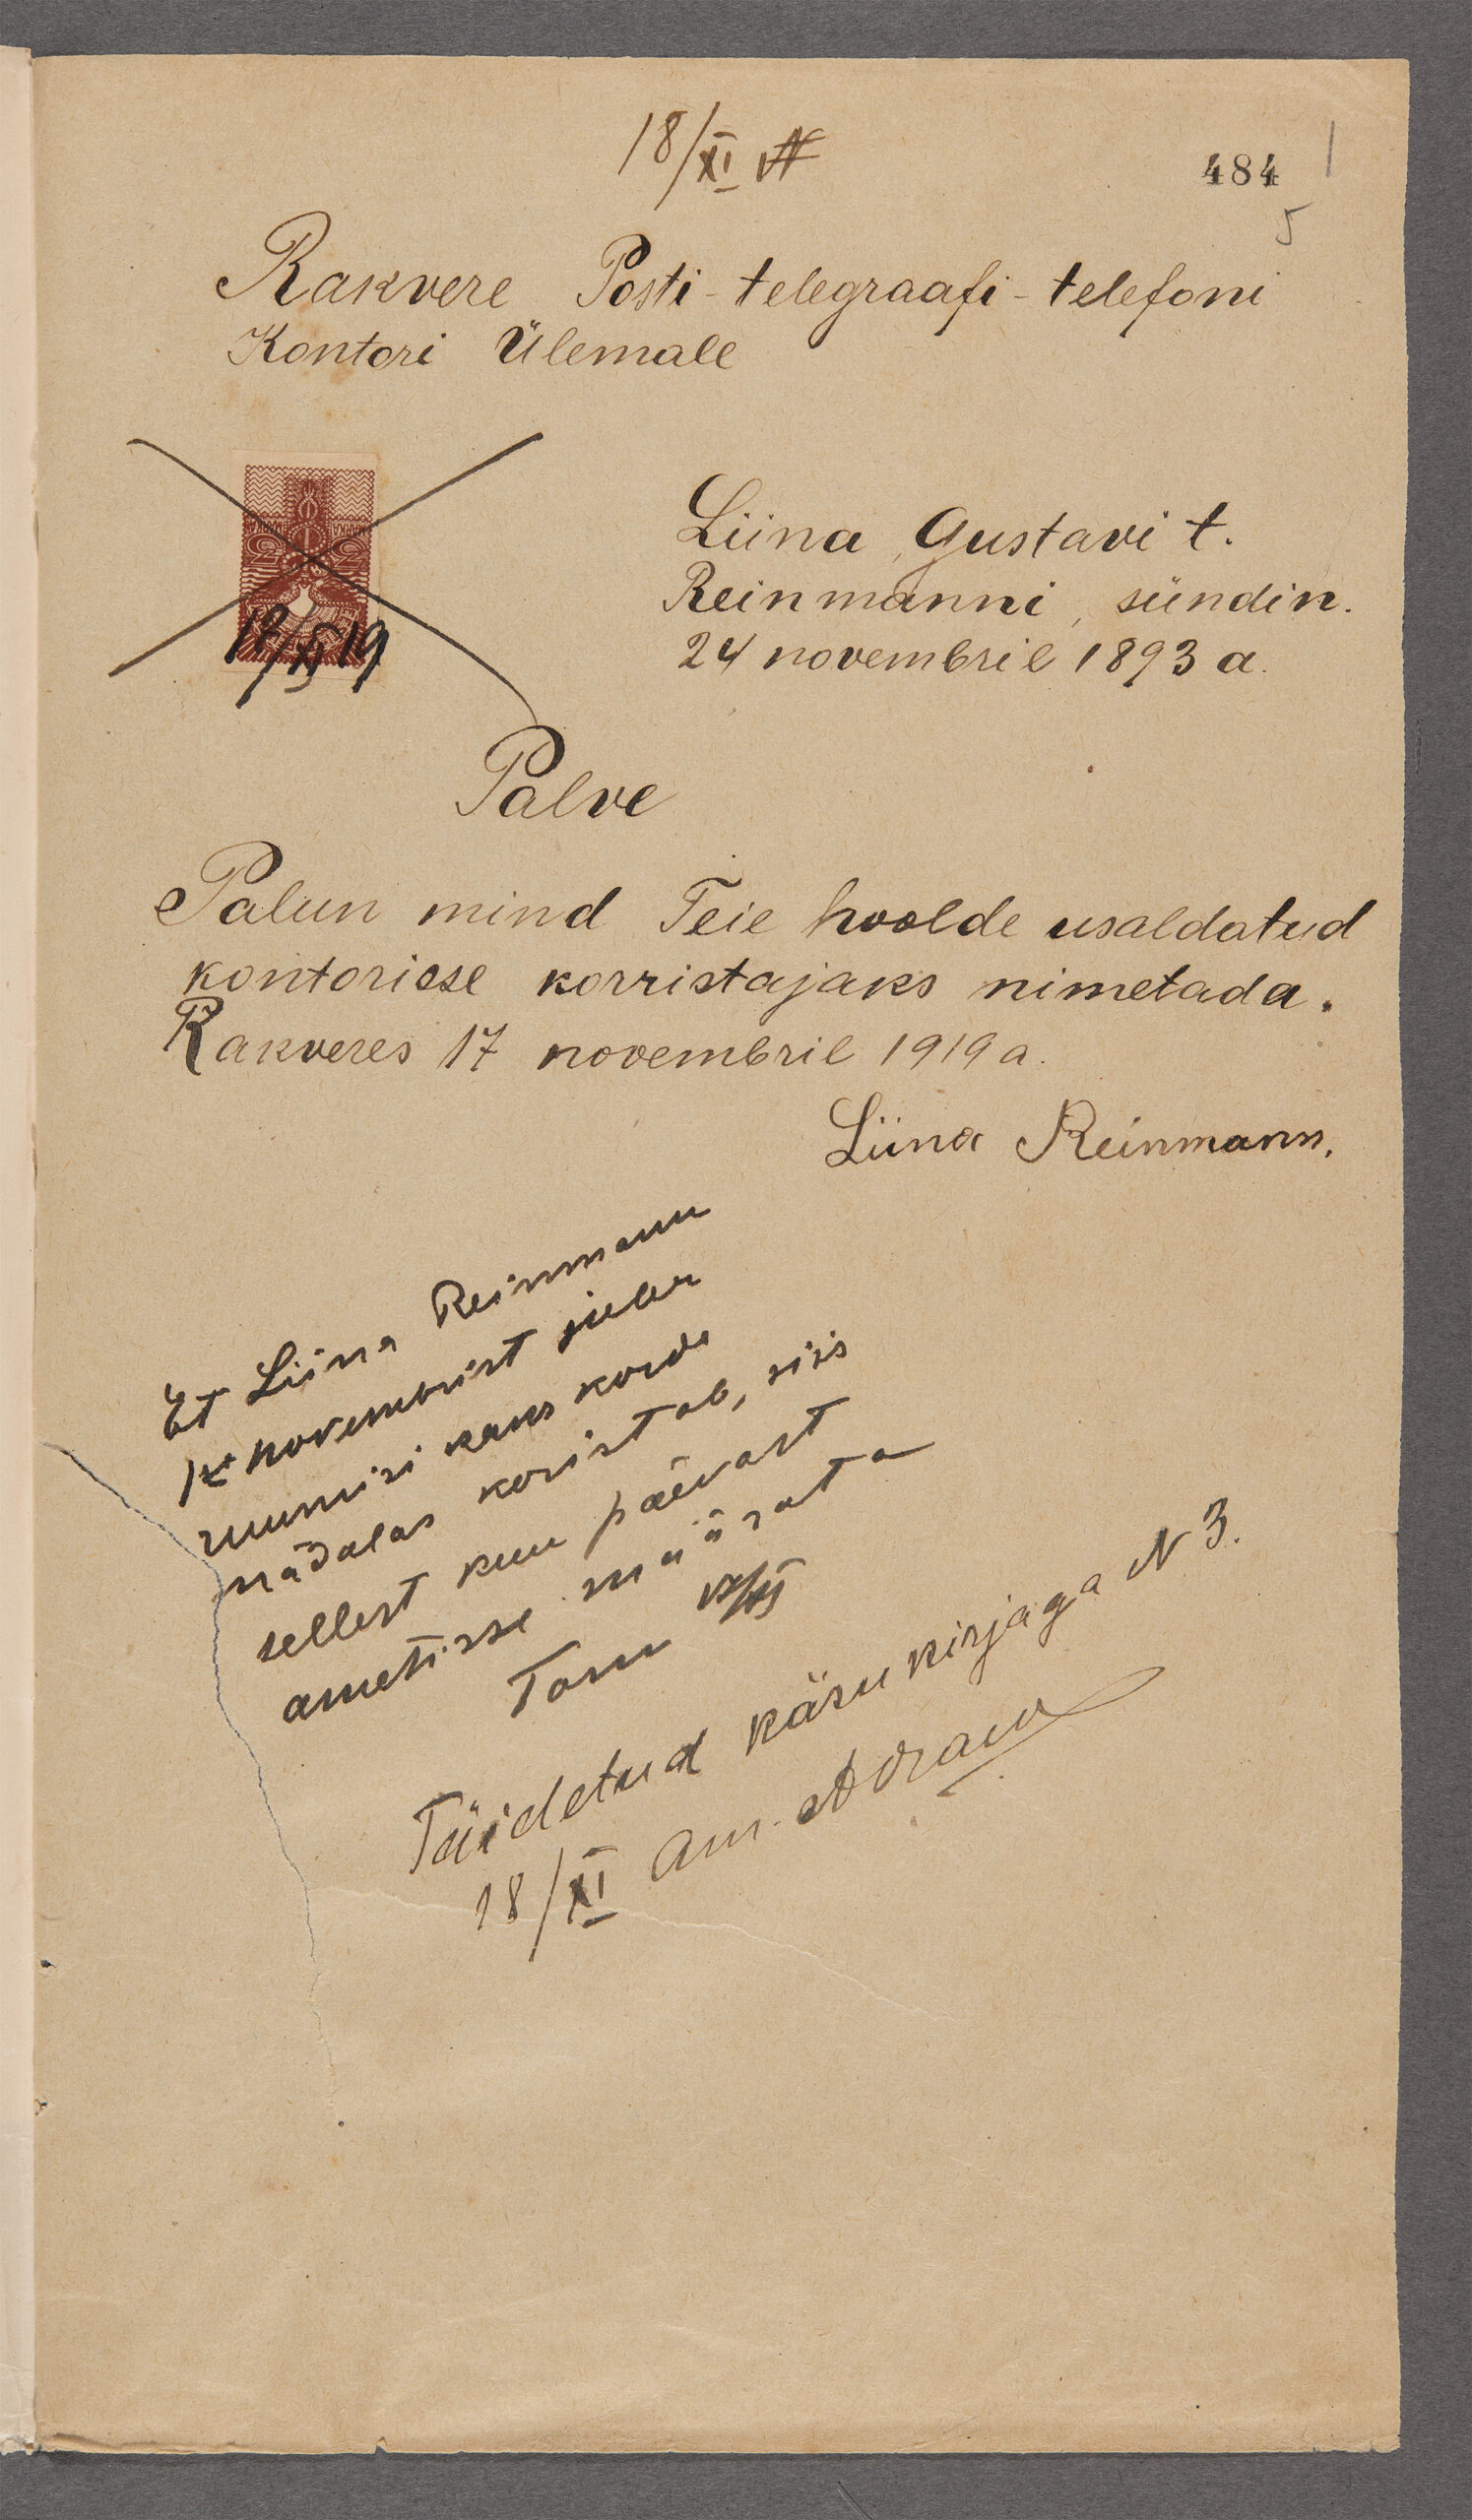 18/XI
484
1
5
Rakvere Posti-telegraafi-telefoni
Kontori Ülemale
17/XI 19
Liina Gustavi t.
Reinmanni, sündin.
24 novembril 1893 a.
Palve
Palun mind Teie hoolde usaldatud
kontoriese korristajaks nimetada.
Rakveres 17 novembril 1919 a.
Liina Reinmann.
Et Liina Reinmann
novembrist
ruumisi kaks korda
nädalas koristab, siis
sellest kuu päevast
ametisse määrata
Täidetud käsukirjaga N 3.
18/XI Am.